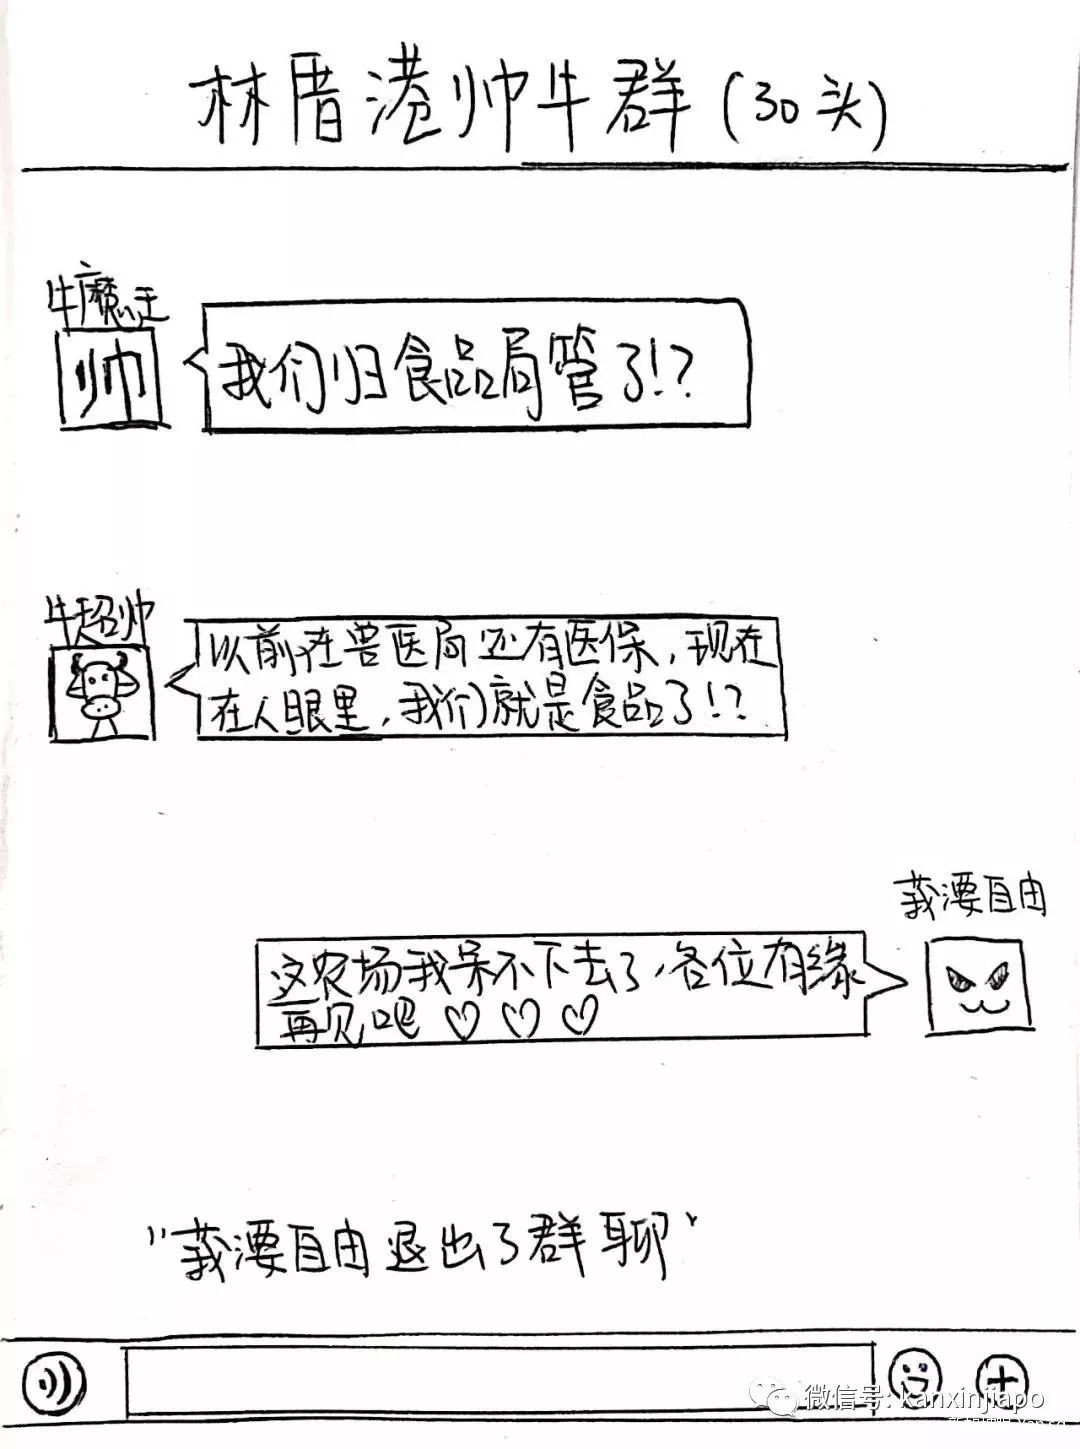 林厝港帅牛群(30头)
牛魔王
帅
我们归食品局管了!?
牛超帅
以前在兽医局还有医保,现在
在人眼里,我们就是食品了!?
莪湮自由
这农场我呆不下去了,各位有缘
再见吧♡♡♡
"莪湮自由退出了群聊"
微信号: kanxinjiapo